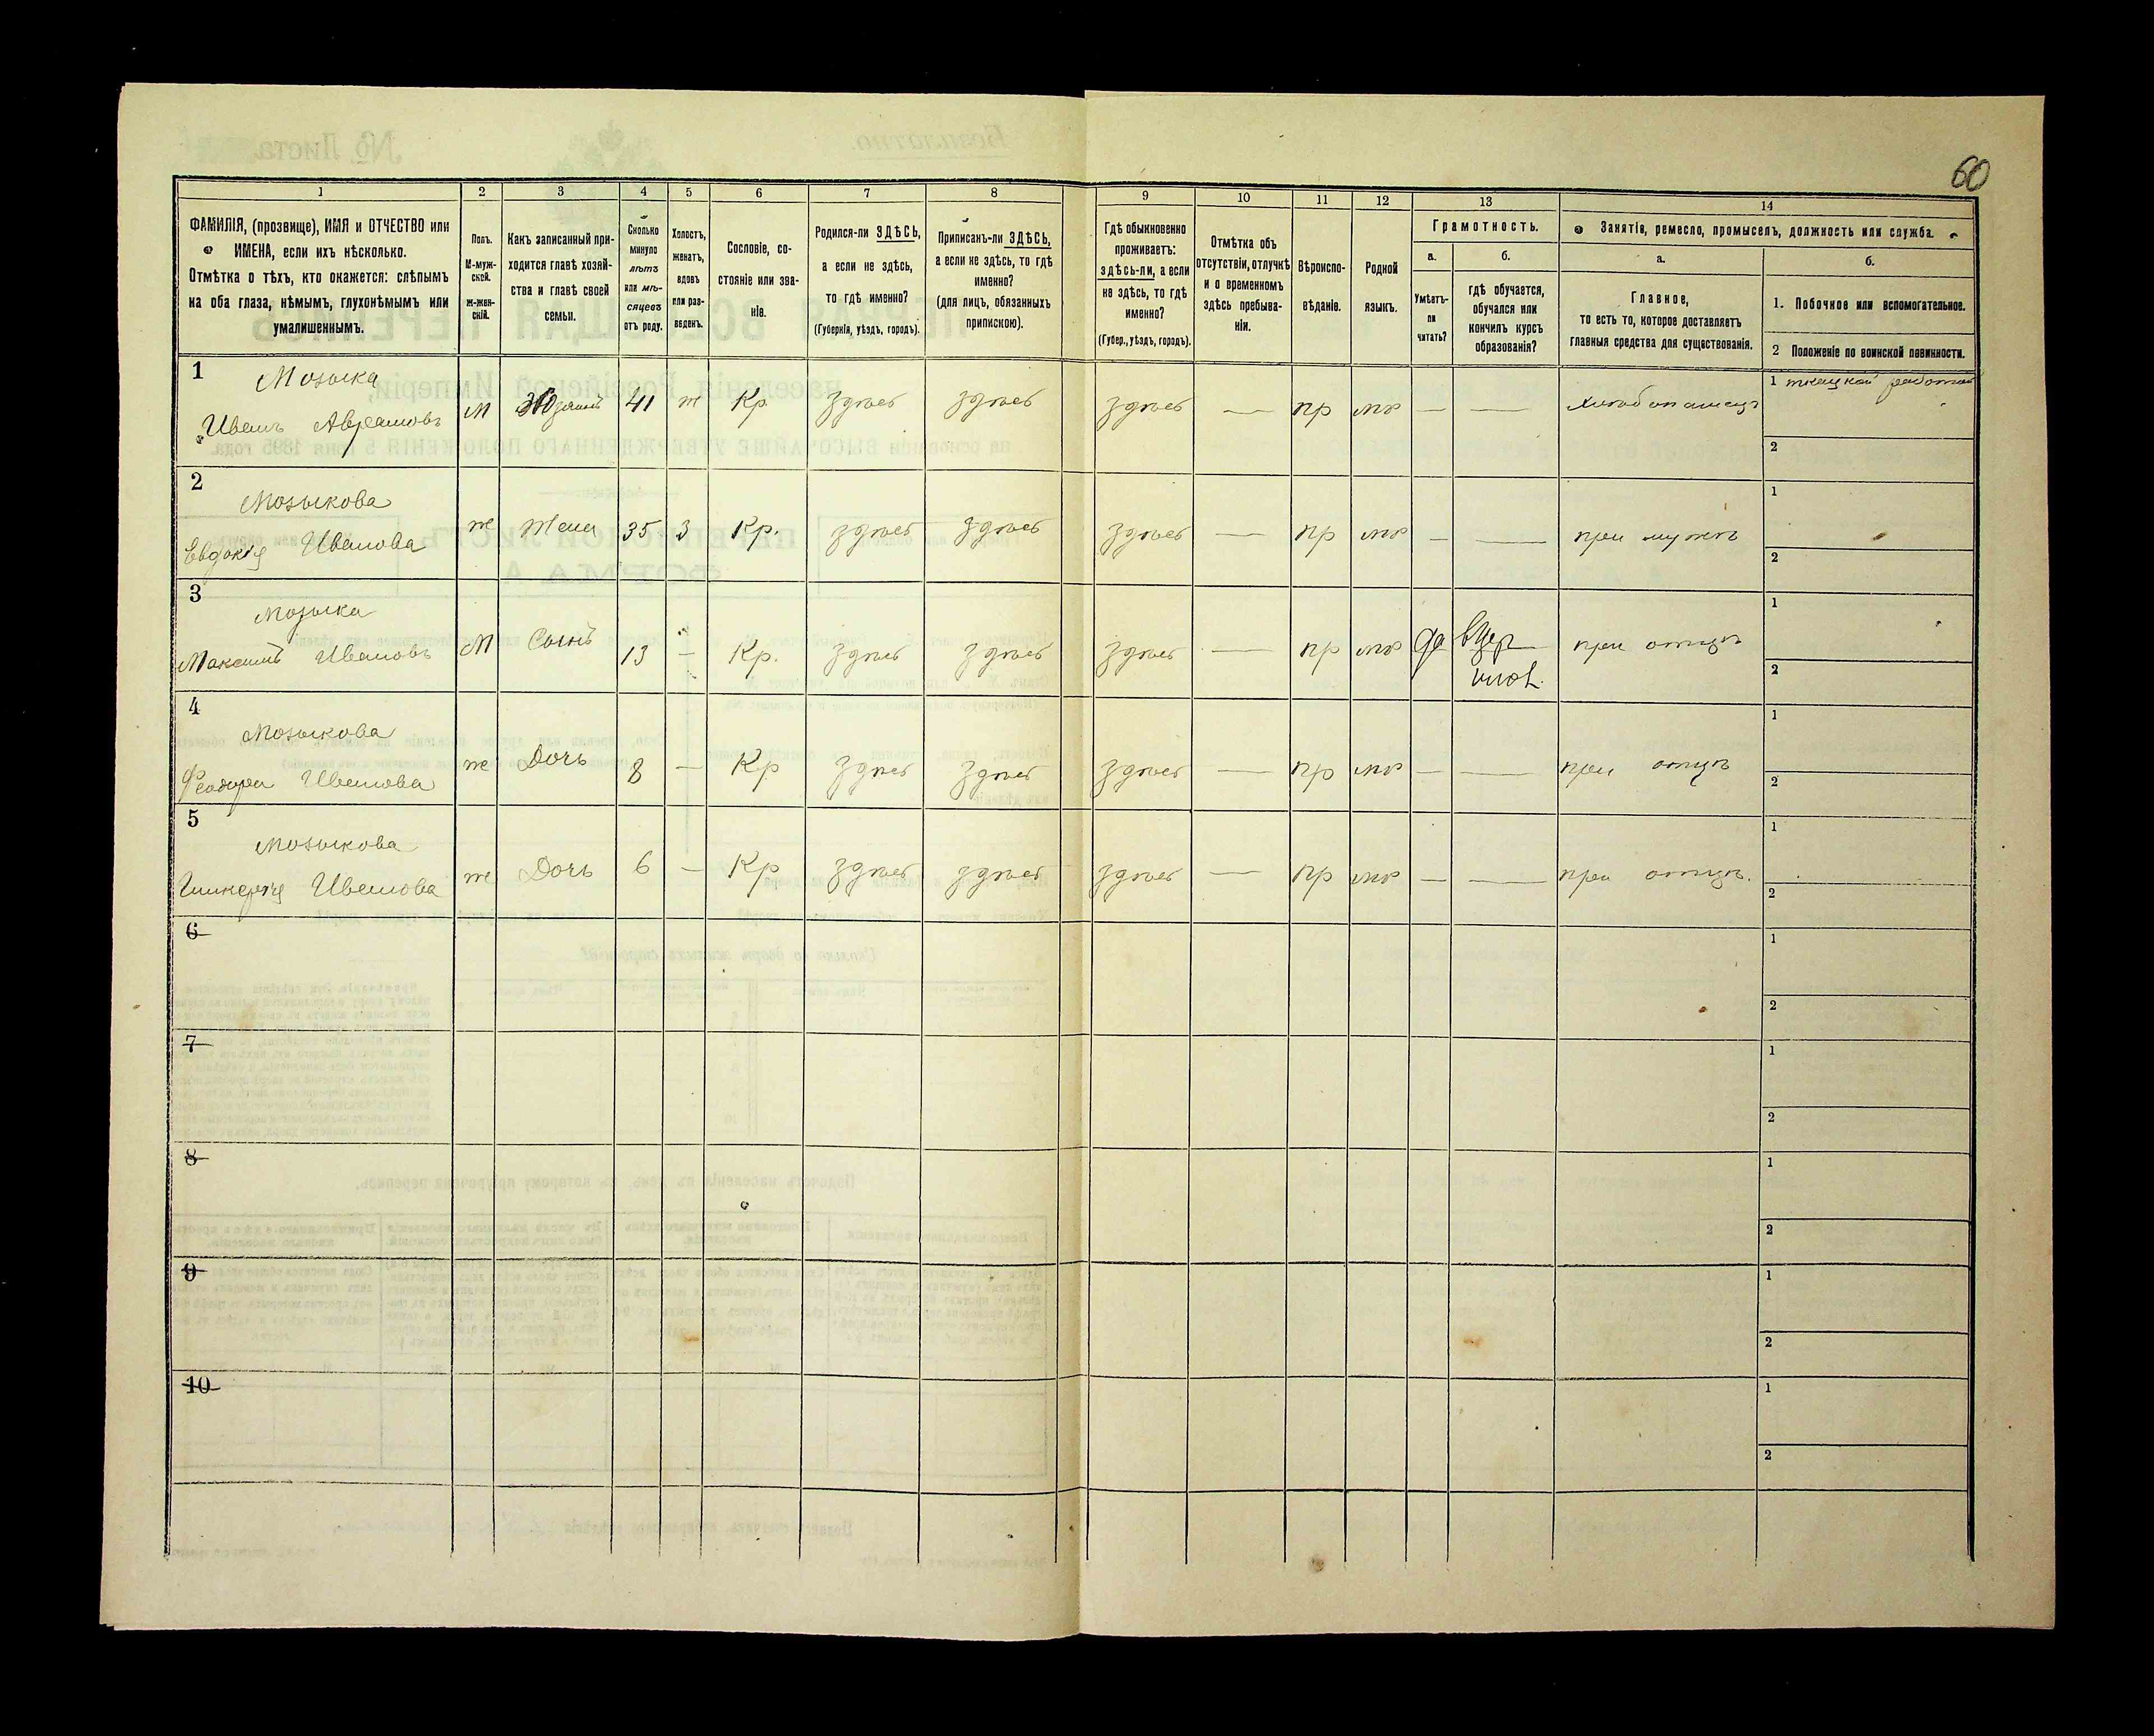 60
1 2 3 4 5 6 7 8 9 10 11 12 13 14
ФАМИЛІЯ, (прозвище), ИМЯ и ОТЧЕСТВО или
ИМЕНА, если ихъ нѣсколько.
Отмѣтка о тѣхъ, кто окажется: слѣпымъ
на оба глаза, нѣмымъ, глухонѣмымъ или
умалишеннымъ.
Полъ.
М-муж-
ской.
Ж-жен-
скій.
Какъ записанный при-
ходится главѣ хозяй-
ства и главѣ своей
семьи.
Сколько
минуло
лѣтъ
или мѣ-
сяцевъ
отъ роду.
Холостъ,
женатъ,
вдовъ
или раз-
веденъ.
Сословіе, со-
стояніе или зва-
ніе.
Родился-ли ЗДѢСЬ,
а если не здѣсь,
то гдѣ именно?
(Губернія, уѣздъ, городъ).
Приписанъ-ли ЗДѢСЬ,
а если не здѣсь, то гдѣ
именно?
(для лицъ, обязанныхъ
припискою).
Гдѣ обыкновенно
проживаетъ:
здѣсь-ли, а если
не здѣсь, то гдѣ
именно?
(Губер., уѣздъ, городъ).
Отмѣтка объ
отсутствіи, отлучкѣ
и о временномъ
здѣсь пребыва-
ніи.
Вѣроиспо-
вѣданіе.
Родной
языкъ.
Грамотность.
а.
Умѣетъ-
ли
читать?
б.
гдѣ обучается,
обучался или
кончилъ курсъ
образованія?
Занятіе, ремесло, промыселъ, должность или служба.
а.
Главное,
то есть то, которое доставляетъ
главныя средства для существованія.
б.
1. Побочное или вспомогательное.
2 Положеніе по воинской повинности.
1 Мозыка
Иванъ Аврамовъ М 41 ж Кр здѣсь здѣсь здѣсь — пр мр — — хлѣбопашецъ
1
2
2 Мозыкова
Евдокія Иванова ж Жена 35 З Кр. здѣсь здѣсь здѣсь — пр мр — — при мужѣ
1
2
3 Мозыка
Максимъ Ивановъ М Сынъ 13 — Кр. здѣсь здѣсь здѣсь — пр мр да при отцѣ
1
2
4 Мозыкова
Иванова ж Дочь 8 — Кр здѣсь здѣсь здѣсь — пр мр — — при отцѣ
1
2
5 Мозыкова
Иванова ж Дочь 6 — Кр здѣсь здѣсь здѣсь — пр мр — — при отцѣ.
1
2
6
1
2
7
1
2
8
1
2
9
1
2
10
1
2